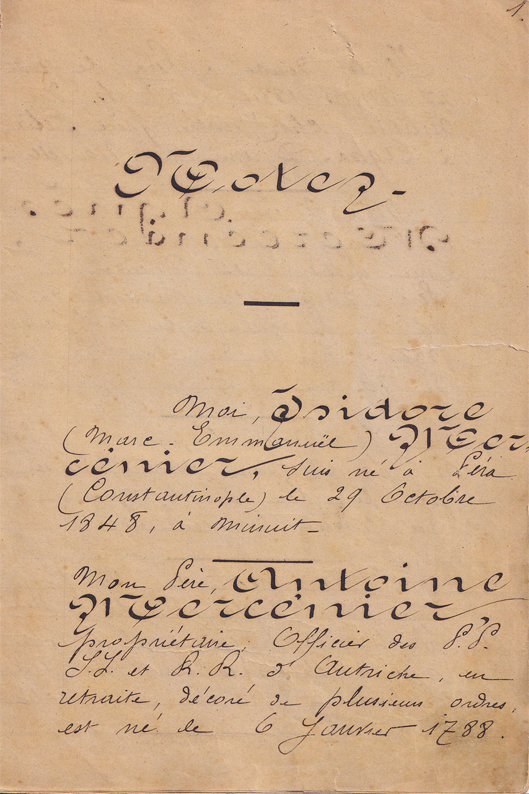 1.
Notes -
Moi, Isidore
(Marc - Emmanuël) Mer-
cénier, suis né à Péra
(Constantinople) le 29 Octobre
1848, à minuit -
Mon Père, Antoine
Mercénier
propriétaire, Officier des P.P.
I.I. et R.R. d'Autriche, en
retraite, décoré de plusieurs ordres,
est né le 6 Janvier 1788.